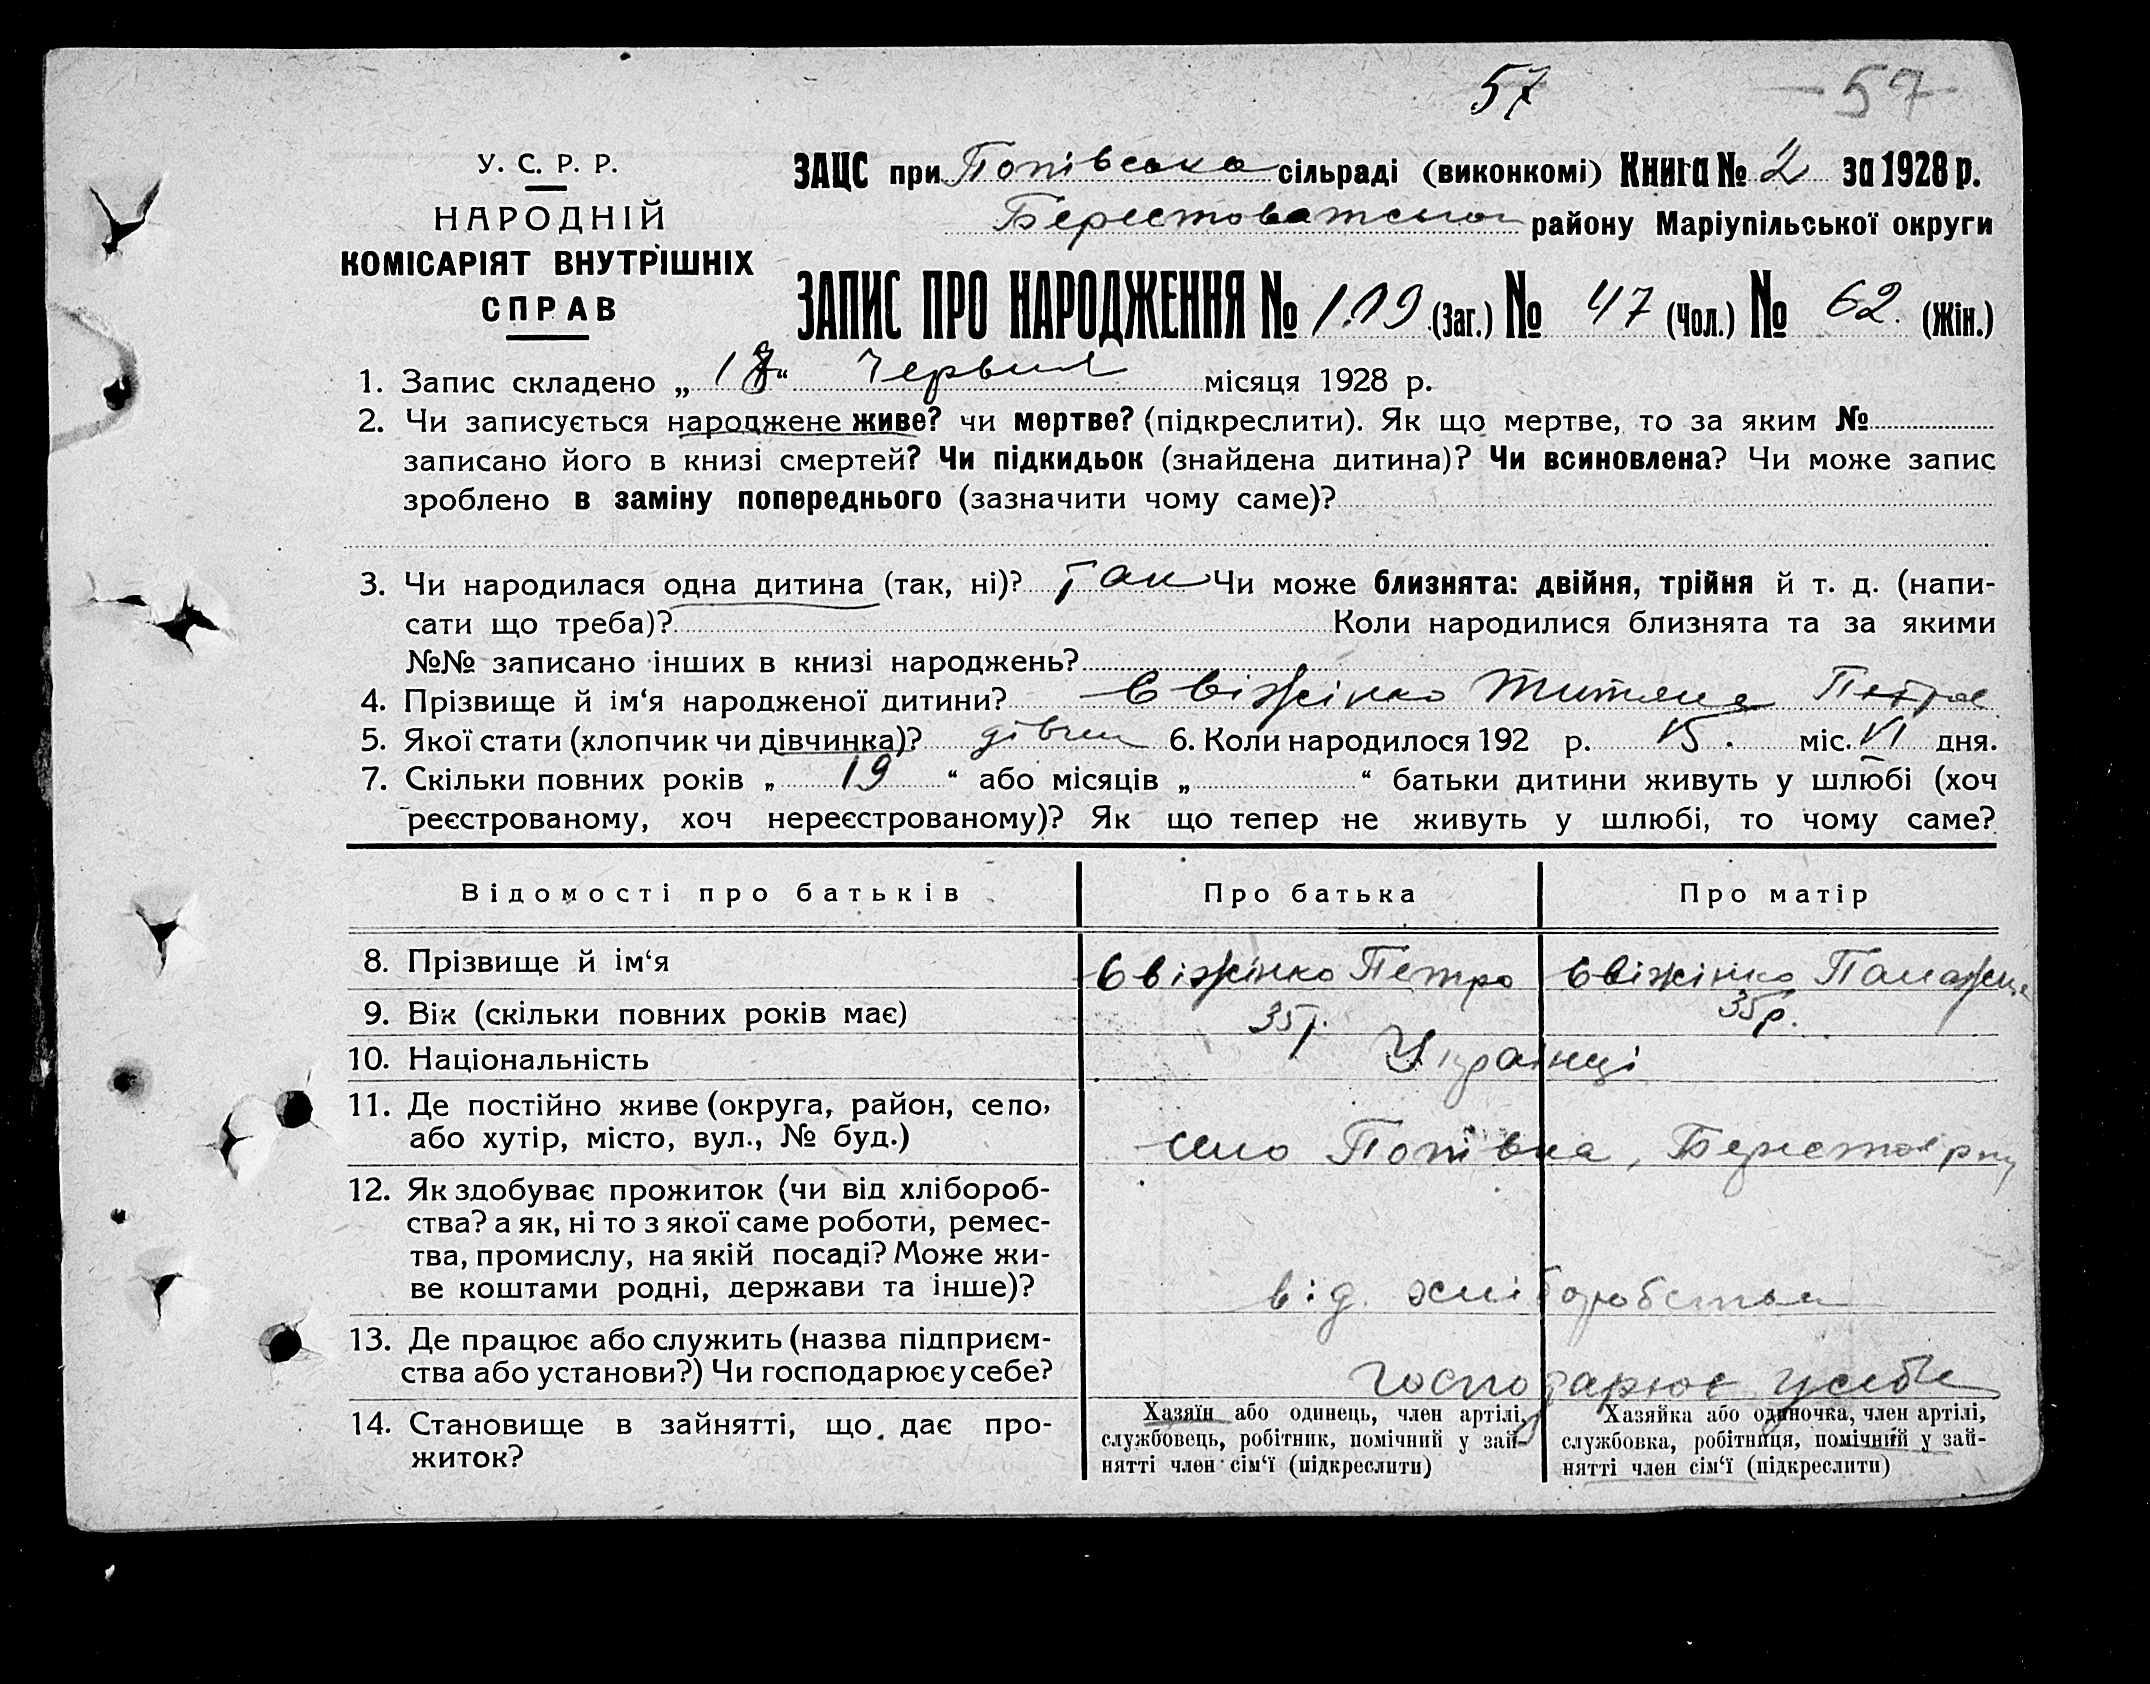 57 57
У. С. Р. Р.
НАРОДНІЙ
КОМІСАРІЯТ ВНУТРІШНІХ
СПРАВ
ЗАЦС при Попівська сільраді (виконкомі) Книга № 2 за 1928 р.
району Маріупільської округи
ЗАПИС ПРО НАРОДЖЕННЯ № 109 (Заг.) № 47 (Чол.) № 62. (Жін.)
1. Запис складено „ “ Червня місяця 1928 р.
2. Чи записується народжене живе? чи мертве? (підкреслити). Як що мертве, то за яким №
записано його в книзі смертей? Чи підкидьок (знайдена дитина)? Чи всиновлена? Чи може запис
зроблено в заміну попереднього (зазначити чому саме)?
3. Чи народилася одна дитина (так, ні)? Так Чи може близнята: двійня, трійня й т. д. (напи-
сати що треба)? Коли народилися близнята та за якими
№№ записано інших в книзі народжень?
4. Прізвище й ім‘я народженої дитини? Євіжінко Титяна
5. Якої стати (хлопчик чи дівчинка)? дівчин 6. Коли народилося 192 р. 15. міс. VI дня.
7. Скільки повних років „ 19 “ або місяців „ “ батьки дитини живуть у шлюбі (хоч
реєстрованому, хоч нереєстрованому)? Як що тепер не живуть у шлюбі, то чому саме?
Відомості про батьків Про батька Про матір
8. Прізвище й ім‘я Євіжінко Петро Євіжінко
9. Вік (скільки повних років має) 35 р. 35 р.
10. Національність Українці
11. Де постійно живе (округа, район, село,
або хутір, місто, вул., № буд.) село Попівка,
12. Як здобуває прожиток (чи від хлібороб-
ства? а як, ні то з якої саме роботи, ремес-
тва, промислу, на якій посаді? Може жи-
ве коштами родні, держави та інше)? від хліборобства
13. Де працює або служить (назва підприєм-
ства або установи?) Чи господарює у себе? господарює у себе
14. Становище в зайнятті, що дає про-
житок?
Хазяїн або одинець, член артілі,
службовець, робітник, помічний у зай-
нятті член сім‘ї (підкреслити)
Хазяйка або одиночка, член артілі,
службовка, робітниця, помічний у зай-
нятті член сім‘ї (підкреслити)